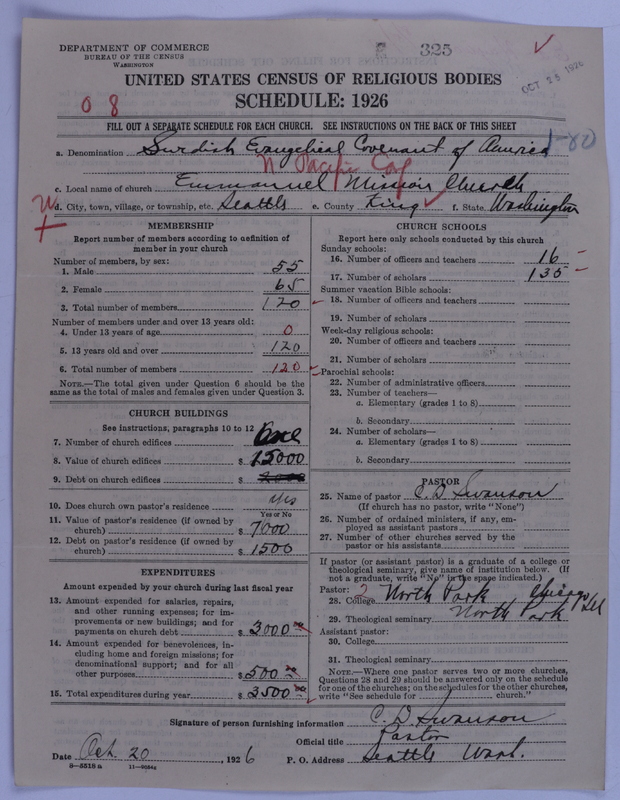 DEPARTMENT OF COMMERCE
BUREAU OF THE CENSUS
WASHINGTON
325
OCT 25 1926
UNITED STATES CENSUS OF RELIGIOUS BODIES
SCHEDULE: 1926
0 8
FILL OUT A SEPARATE SCHEDULE FOR EACH CHURCH. SEE INSTRUCTIONS ON THE BACK OF THIS SHEET
1-80
a. Denomination Swedish Evangelical Covenant of America
N Pacific Conf
c. Local name of church Emmanuel Mission Church
d. City, town, village, or township, etc. Seattle e. County King f. State Washington
MEMBERSHIP
Report number of members according to definition of
member in your church
Number of members, by sex:
1. Male 55
2. Female 65
3. Total number of members 120
Number of members under and over 13 years old:
4. Under 13 years of age 0
5. 13 years old and over 120
6. Total number of members 120
NOTE.—The total given under Question 6 should be the
same as the total of males and females given under Question 3.
CHURCH BUILDINGS
See instructions, paragraphs 10 to 12
7. Number of church edifices One
8. Value of church edifices $ 15000
9. Debt on church edifices $
10. Does church own pastor's residence yes
Yes or No
11. Value of pastor's residence (if owned by
church) $ 7000
12. Debt on pastor's residence (if owned by
church) $ 1500
EXPENDITURES
Amount expended by your church during last fiscal year
13. Amount expended for salaries, repairs,
and other running expenses; for im-
provements or new buildings; and for
payments on church debt $ 3000
14. Amount expended for benevolences, in-
cluding home and foreign missions; for
denominational support; and for all
other purposes $ 500
15. Total expenditures during year $ 3500
CHURCH SCHOOLS
Report here only schools conducted by this church
Sunday schools:
16. Number of officers and teachers 16
17. Number of scholars 135
Summer vacation Bible schools:
18. Number of officers and teachers
19. Number of scholars
Week-day religious schools:
20. Number of officers and teachers
21. Number of scholars
Parochial schools:
22. Number of administrative officers
23. Number of teachers—
a. Elementary (grades 1 to 8)
b. Secondary
24. Number of scholars—
a. Elementary (grades 1 to 8)
b. Secondary
PASTOR
25. Name of pastor C. D. Swanson
(If church has no pastor, write "None")
26. Number of ordained ministers, if any, em-
ployed as assistant pastors
27. Number of other churches served by the
pastor or his assistants
If pastor (or assistant pastor) is a graduate of a college or
theological seminary, give name of institution below. (If
not a graduate, write "No" in the space indicated.)
Pastor: 2
28. College North Park Chicago Ill
29. Theological seminary North Park
Assistant pastor:
30. College
31. Theological seminary
NOTE.—Where one pastor serves two or more churches,
Questions 28 and 29 should be answered only on the schedule
for one of the churches; on the schedules for the other churches,
write "See schedule for church."
Signature of person furnishing information C. D. Swanson
Official title Pastor
Date Oct. 20, 1926 P. O. Address Seattle Wash.
8-5518 a 11-9054a